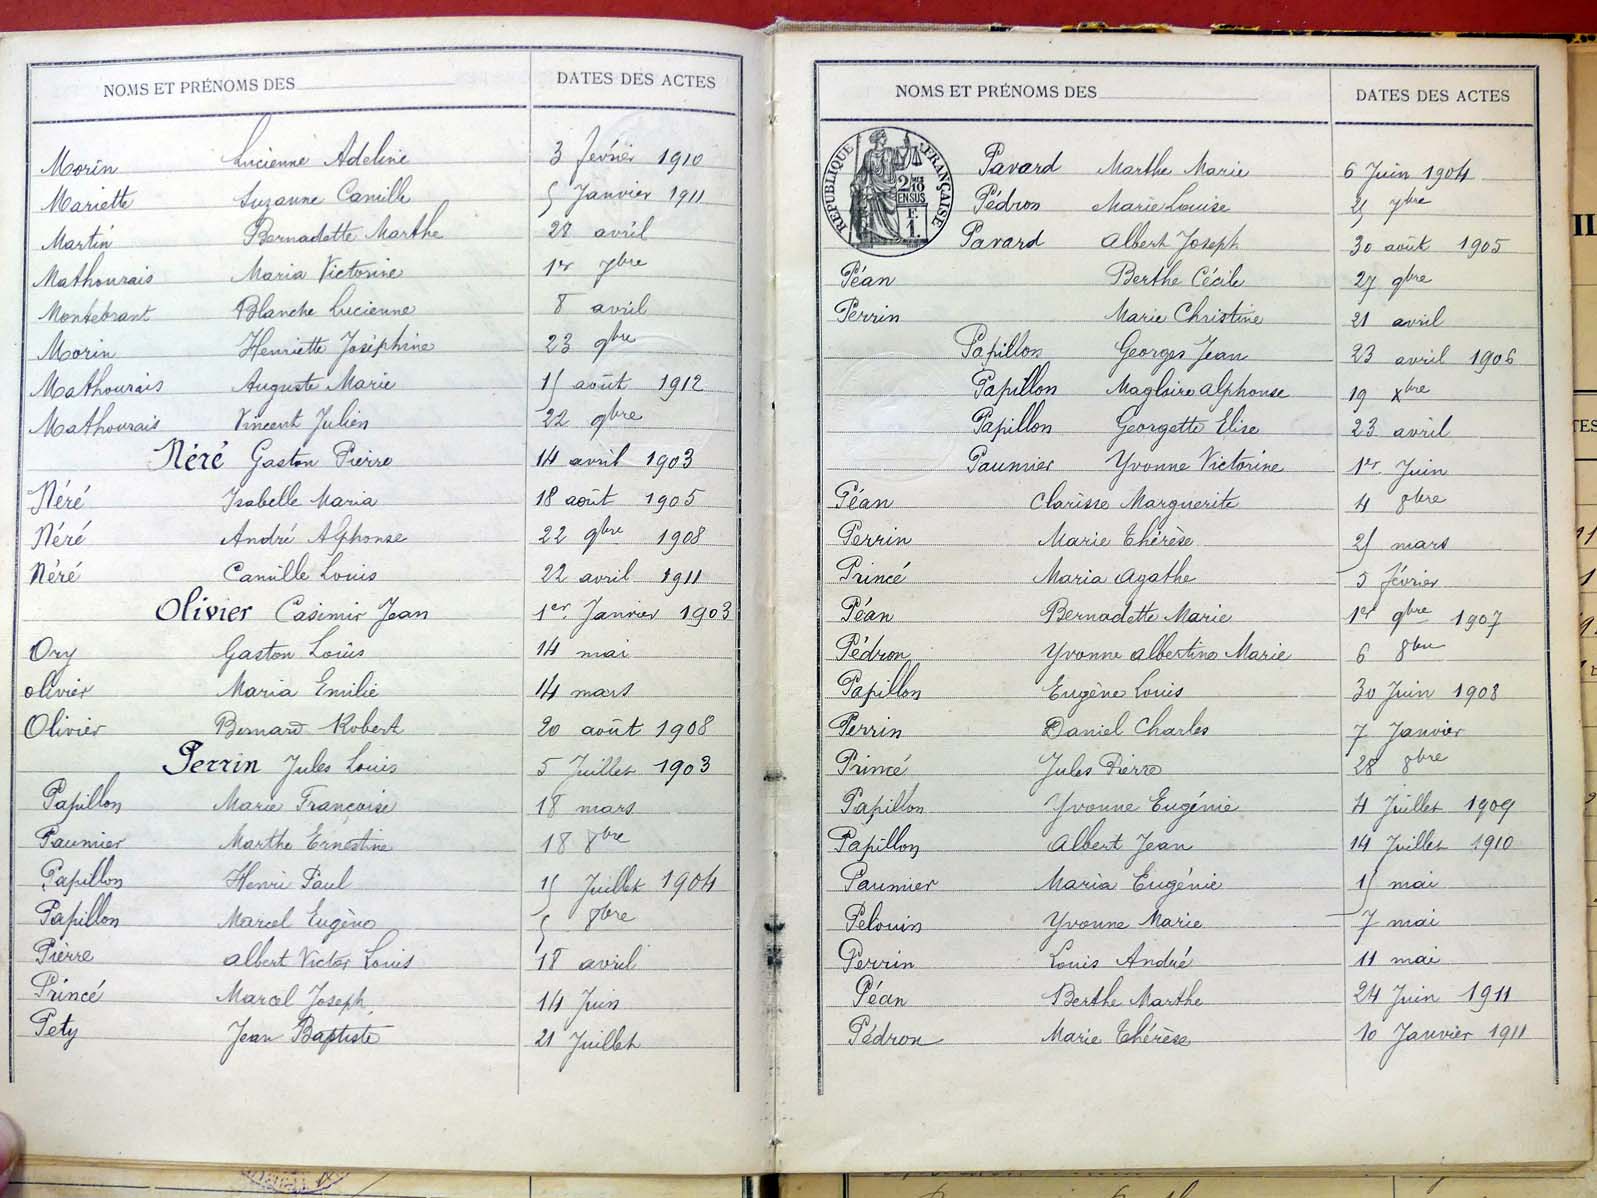 NOMS ET PRÉNOMS DES DATES DES ACTES
Morin Lucienne Adeline 3 février 1910
Mariette Suzanne Camille 5 Janvier 1911
Martin Bernadette Marthe 28 avril
Mathourais Maria Victorine 1er 7bre
Montebrant Blanche Lucienne 8 avril
Morin Henriette Joséphine 23 9bre
Mathourais Auguste Marie 15 août 1912
Mathourais Vincent Julien 22 9bre
Néré Gaston Pierre 14 avril 1903
Néré Isabelle Maria 18 août 1905
Néré André Alphonse 22 9bre 1908
Néré Camille Louis 22 avril 1911
Olivier Casimir Jean 1er Janvier 1903
Ory Gaston Louis 14 mai
olivier Maria Emilie 14 mars
Olivier Bernard Robert 20 août 1908
Perrin Jules Louis 5 Juillet 1903
Papillon Marie Françoise 18 mars
Paumier Marthe Ernestine 18 8bre
Papillon Henri Paul 15 Juillet 1904
Papillon Marcel Eugène 5 8bre
Pierre albert Victor Louis 18 avril
Princé Marcel Joseph 14 Juin
Pety Jean Baptiste 21 Juillet
NOMS ET PRÉNOMS DES DATES DES ACTES
RÉPUBLIQUE FRANÇAISE
2/10
EN SUS
F.
1.
Pavard Marthe Marie 6 Juin 1904
Pédron Marie Louise 25 7bre
Pavard Albert Joseph 30 août 1905
Péan Berthe Cécile 27 9bre
Perrin Marie Christine 21 avril
Papillon Georges Jean 23 avril 1906
Papillon Magloire alphonse 19 Xbre
Papillon Georgette Elise 23 avril
Paumier Yvonne Victorine 1er Juin
Péan Clarisse Marguerite 4 8bre
Perrin Marie Thérèse 25 mars
Princé Maria Agathe 5 février
Péan Bernadette Marie 1er 9bre 1907
Pédron Yvonne albertine Marie 6 8bre
Papillon Eugène Louis 30 Juin 1908
Perrin Daniel Charles 7 Janvier
Princé Jules Pierre 28 8bre
Papillon Yvonne Eugénie 4 Juillet 1909
Papillon Albert Jean 14 Juillet 1910
Paumier Maria Eugénie 15 mai
Pelouin Yvonne Marie 7 mai
Perrin Louis André 11 mai
Péan Berthe Marthe 24 Juin 1911
Pédron Marie Thérèse 10 Janvier 1911